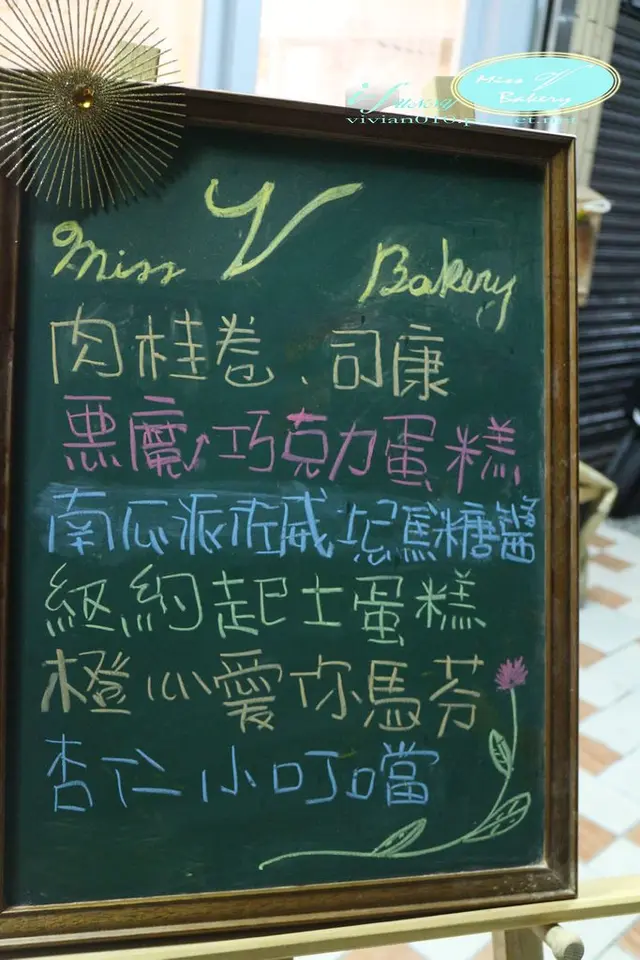 Miss V Bakery
vivian010.p
Miss V Bakery
肉桂卷、司康
悪魔巧克力蛋糕
南瓜派佐威士忌焦糖醬
紐約起士蛋糕
橙心愛你馬芬
杏仁小叮噹